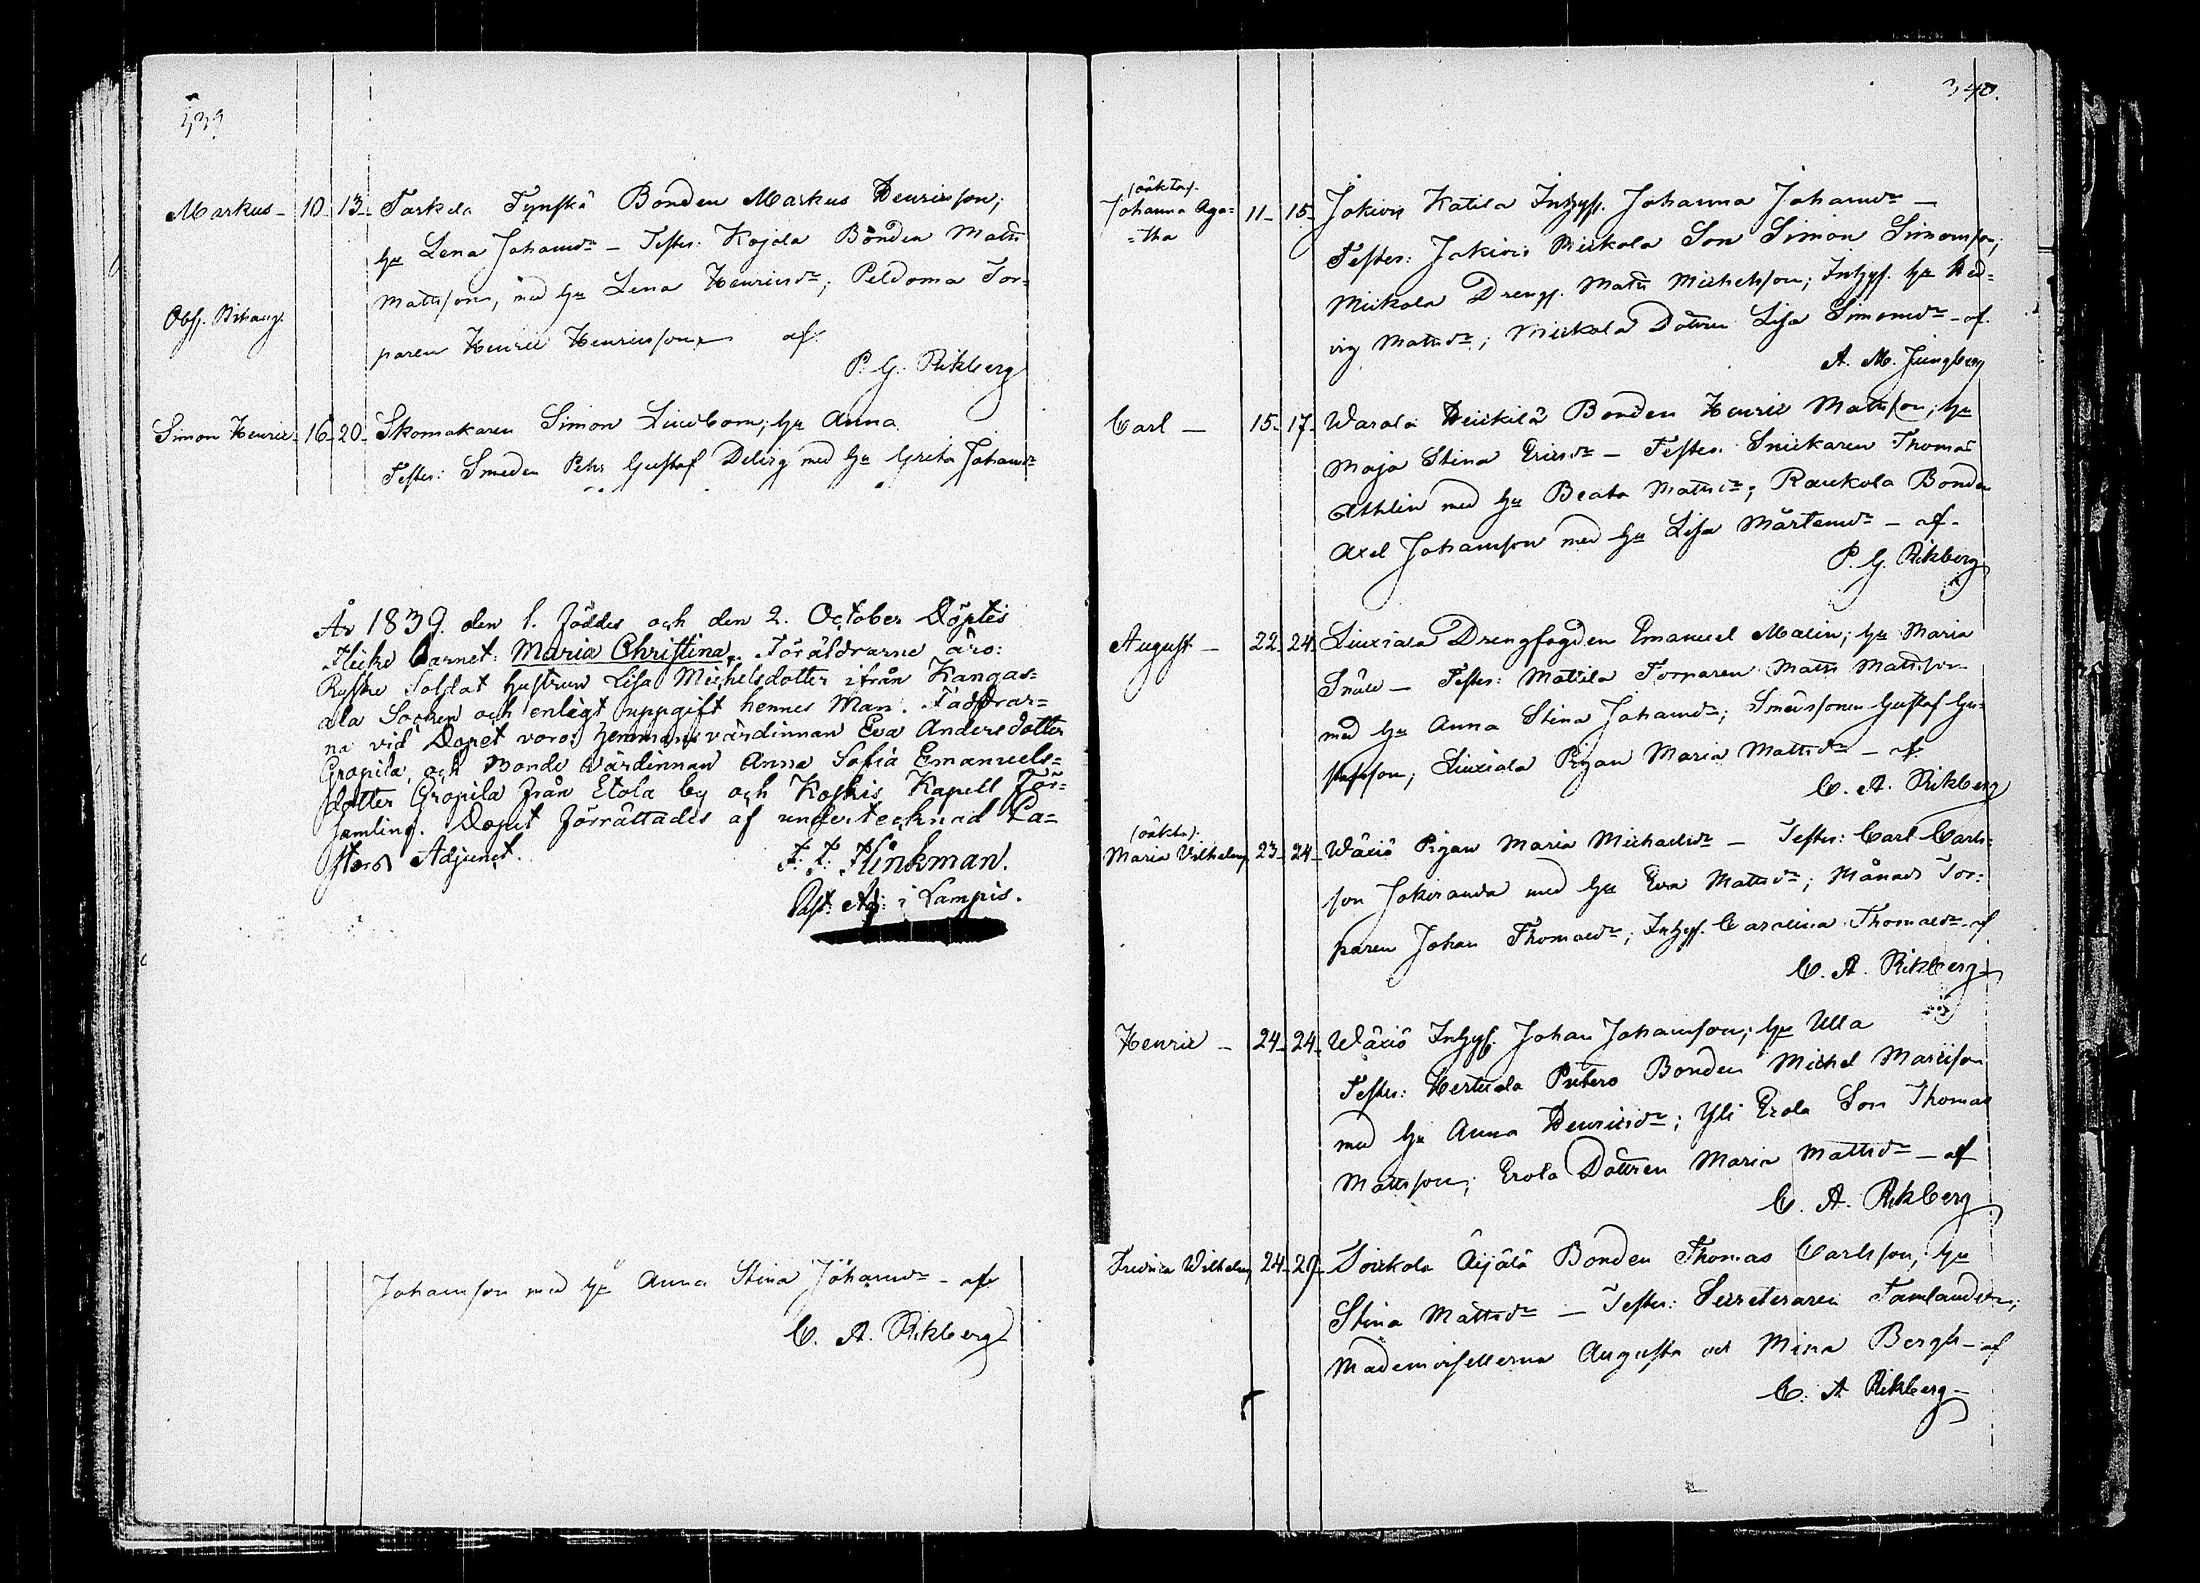 339
Markus - 10 - 13 - Tarkela Bonden Markus Henricsson;
hu Lena Johansdr - Testes: Kojola Bonden Matts
Mattsson, med hu Lena Henricsdr; Peldoma Tor=
Obs. Bihang.
paren Henric Henricsson af
P. G. Rikberg
Simon Henric - 16 - 20 - Skomakaren Simon Lindbom; hu Anna
Testes: Smeden Pehr Gustaf med hu Greta Johansdr
År 1839. den 1. föddes och den 2. October Döptes
Flicke barnet: Maria Christina. Föräldrarne äro:
Ryske Soldat hustrun Lisa Michelsdotter ifrån Kangas=
ala Socken och enligt uppgift hennes Man. Faddrar=
na vid Dopet voro: Hemmans värdinnan Eva Andersdotter
Gropila, och Bonde värdinnan Anna Sofia Emanuels=
dotter Gropila från Etola by och Koskis Kapell För=
samling. Dopet förrättades af undertecknad Pa=
stors Adjunct.
F. F. Flinkman.
Past: Adj: i Lampis.
Johansson med hu Anna Stina Johansdr - af
C. A. Rikberg
340.
(oäkta).
Johanna Aga=
=tha
11 - 15 - Jokiois Katila Inhys. Johanna Johansdr -
Testes: Jokiois Mickola Son Simon Simonsson;
Mickola Dreng. Matts Michelsson; Inhys. hu Hed=
vig Mattsdr; Mickola Dottren Lisa Simonsdr - af
A. M. Ljungberg
Carl - 15 - 17 - Warala Heickilä Bonden Henric Mattsson; hu
Maja Stina Ericsdr - Testes: Snickaren Thomas
Athlin med hu Beata Mattsdr; Rauckola Bonden
Axel Johansson med hu Lisa Mårtensdr - af
P. G. Rikberg
August - 22 - 24 - Liuxiala Drengfogden Emanuel Malin; hu Maria
Snäll - Testes: Mattila Torparen Matts Mattsson
med hu Anna Stina Johansdr; Smedssonen Gustaf Gu=
stafsson; Liuxiala Pigan Maria Mattsdr - af
C. A. Rikberg
(oäkta).
Maria Vilhelm. 23 - 24 - Wäxiö Pigan Maria Michaelsdr - Testes: Carl Carls=
son Jokiranda med hu Eva Mattsdr; Månads Tor=
paren Johan Thomasdr; Inhys. Carolina Thomasdr - af
C. A. Rikberg
Henric - 24 - 24 - Wäxiö Inhys. Johan Johansson; hu Ulla
Testes: Hertuala Bonden Michel
med hu Anna Henricsdr; Yli Erola Son Thomas
Mattsson; Erola Dottren Maria Mattsdr - af
C. A. Rikberg
Fredrica Wilhelm. 24 - 27 - Äijälä Bonden Thomas Carlsson; hu
Stina Mattsdr - Testes: Secreteraren Tamlander;
Mademoisellerna Augusta och Mina Bergh - af
C. A. Rikberg